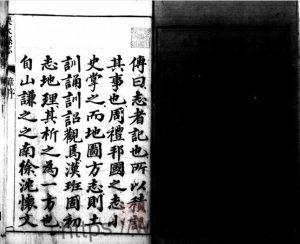 傳曰志者記也所以積
其事也周禮邦國之志小
史掌之而地圖方志則土
訓誦訓詔觀焉漢班固初
志地理其析之為一方也
自山謙之之南徐沈懷文